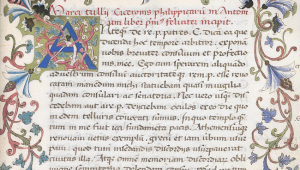 Marci Tullij Ciceronis philippicarũ in Antoni
um liber pm⁹ feliciter incipit.
Anteq̃ de re. p. patres. C. dicã ea que
dicenda hoc tempore arbitror: exponã
vobis breviter consilium et profectio
nis mee. Ego cum sperarem aliquando
ad vestrum consilium auctoritatẽq; rem. p. esse revo
catam: manendum michi statuebam quasi in vigilia
quadam consulari ac senatoria. Nec vero usq̃ dis
cedebam aut a re. p. deiciebam oculos ex eo die quo
in edem telluris convocati sumus. In quo templo q̃
tum in me fuit ieci fundamenta pacis. Atheniensiũq;
renovavi vetus exemplũ: grecũ etiam verbum usur
pavi: quo tum in sedandis discordijs usurpaverat
civitas illa. Atq; omnem memoriam discordiarũ obli
vione sempiterna delendam censui